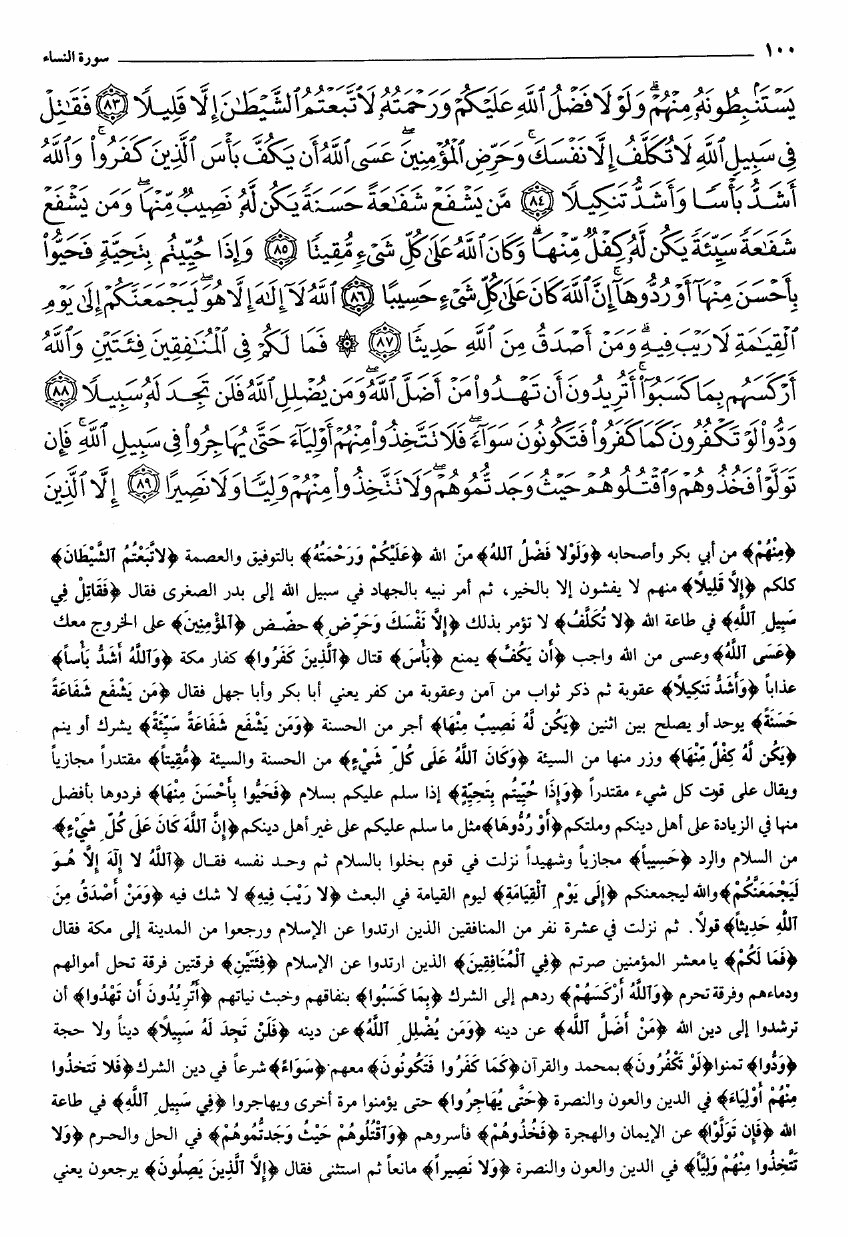 ١٠٠ سورة النساء
يَسْتَنۢبِطُونَهُۥ مِنْهُمْ ۗ وَلَوْلَا فَضْلُ ٱللَّهِ عَلَيْكُمْ وَرَحْمَتُهُۥ لَٱتَّبَعْتُمُ ٱلشَّيْطَٰنَ إِلَّا قَلِيلًا ﴿٨٣﴾ فَقَٰتِلْ
فِى سَبِيلِ ٱللَّهِ لَا تُكَلَّفُ إِلَّا نَفْسَكَ ۚ وَحَرِّضِ ٱلْمُؤْمِنِينَ ۖ عَسَى ٱللَّهُ أَن يَكُفَّ بَأْسَ ٱلَّذِينَ كَفَرُوا۟ ۚ وَٱللَّهُ
أَشَدُّ بَأْسًا وَأَشَدُّ تَنكِيلًا ﴿٨٤﴾ مَّن يَشْفَعْ شَفَٰعَةً حَسَنَةً يَكُن لَّهُۥ نَصِيبٌ مِّنْهَا ۖ وَمَن يَشْفَعْ
شَفَٰعَةً سَيِّئَةً يَكُن لَّهُۥ كِفْلٌ مِّنْهَا ۗ وَكَانَ ٱللَّهُ عَلَىٰ كُلِّ شَىْءٍ مُّقِيتًا ﴿٨٥﴾ وَإِذَا حُيِّيتُم بِتَحِيَّةٍ فَحَيُّوا۟
بِأَحْسَنَ مِنْهَآ أَوْ رُدُّوهَآ ۗ إِنَّ ٱللَّهَ كَانَ عَلَىٰ كُلِّ شَىْءٍ حَسِيبًا ﴿٨٦﴾ ٱللَّهُ لَآ إِلَٰهَ إِلَّا هُوَ ۚ لَيَجْمَعَنَّكُمْ إِلَىٰ يَوْمِ
ٱلْقِيَٰمَةِ لَا رَيْبَ فِيهِ ۗ وَمَنْ أَصْدَقُ مِنَ ٱللَّهِ حَدِيثًا ﴿٨٧﴾ ۞ فَمَا لَكُمْ فِى ٱلْمُنَٰفِقِينَ فِئَتَيْنِ وَٱللَّهُ
أَرْكَسَهُم بِمَا كَسَبُوٓا۟ ۚ أَتُرِيدُونَ أَن تَهْدُوا۟ مَنْ أَضَلَّ ٱللَّهُ ۖ وَمَن يُضْلِلِ ٱللَّهُ فَلَن تَجِدَ لَهُۥ سَبِيلًا ﴿٨٨﴾
وَدُّوا۟ لَوْ تَكْفُرُونَ كَمَا كَفَرُوا۟ فَتَكُونُونَ سَوَآءً ۖ فَلَا تَتَّخِذُوا۟ مِنْهُمْ أَوْلِيَآءَ حَتَّىٰ يُهَاجِرُوا۟ فِى سَبِيلِ ٱللَّهِ ۚ فَإِن
تَوَلَّوْا۟ فَخُذُوهُمْ وَٱقْتُلُوهُمْ حَيْثُ وَجَدتُّمُوهُمْ ۖ وَلَا تَتَّخِذُوا۟ مِنْهُمْ وَلِيًّا وَلَا نَصِيرًا ﴿٨٩﴾ إِلَّا ٱلَّذِينَ
﴿مِنْهُمْ﴾ من أبي بكر وأصحابه ﴿وَلَوْلا فَضْلُ اللهُ﴾ منّ الله ﴿عَلَيْكُمْ وَرَحْمَتُهُ﴾ بالتوفيق والعصمة ﴿لاتَّبَعْتُمُ الشَّيْطَانَ﴾
كلكم ﴿إِلَّا قَلِيلاً﴾ منهم لا يفشون إلا بالخير، ثم أمر نبيه بالجهاد في سبيل الله إلى بدر الصغرى فقال ﴿فَقَاتِلْ فِي
سَبِيلِ اللَّهِ﴾ في طاعة الله ﴿لا تُكَلَّفُ﴾ لا تؤمر بذلك ﴿إِلَّا نَفْسَكَ وَحَرِّضِ﴾ حضّض ﴿المُؤْمِنِينَ﴾ على الخروج معك
﴿عَسَى اللَّهُ﴾ وعسى من الله واجب ﴿أَن يَكُفَّ﴾ يمنع ﴿بَأْسَ﴾ قتال ﴿الَّذِينَ كَفَرُوا﴾ كفار مكة ﴿وَاللَّهُ أَشَدُّ بَأْساً﴾
عذاباً ﴿وَأَشَدُّ تَنكِيلاً﴾ عقوبة ثم ذكر ثواب من آمن وعقوبة من كفر يعني أبا بكر وأبا جهل فقال ﴿مَن يَشْفَع شَفَاعَةً
حَسَنَةً﴾ يوحد أو يصلح بين اثنين ﴿يَكُن لَّهُ نَصِيبٌ مِنْهَا﴾ أجر من الحسنة ﴿وَمَن يَشْفَع شَفَاعَةً سَيِّئَةً﴾ يشرك أو ينم
﴿يَكُن لَّهُ كِفْلٌ مِّنْهَا﴾ وزر منها من السيئة ﴿وَكَانَ اللَّهُ عَلَى كُلِّ شَيْءٍ﴾ من الحسنة والسيئة ﴿مُقِيتاً﴾ مقتدراً مجازياً
ويقال على قوت كل شيء مقتدراً ﴿وَإِذَا حُيِّيتُم بِتَحِيَّةٍ﴾ إذا سلم عليكم بسلام ﴿فَحَيُّوا بِأَحْسَنَ مِنْهَا﴾ فردوها بأفضل
منها في الزيادة على أهل دينكم وملتكم ﴿أَوْ رُدُّوهَا﴾ مثل ما سلم عليكم على غير أهل دينكم ﴿إِنَّ اللَّهَ كَانَ عَلَى كُلِّ شَيْءٍ﴾
من السلام والرد ﴿حَسِيباً﴾ مجازياً وشهيداً نزلت في قوم بخلوا بالسلام ثم وحد نفسه فقال ﴿اللَّهُ لا إِلَهَ إِلَّا هُوَ
لَيَجْمَعَنَّكُمْ﴾ والله ليجمعنكم ﴿إِلَى يَوْمِ الْقِيَامَةِ﴾ ليوم القيامة في البعث ﴿لا رَيْبَ فِيهِ﴾ لا شك فيه ﴿وَمَنْ أَصْدَقُ مِنَ
اللَّهِ حَدِيثاً﴾ قولاً. ثم نزلت في عشرة نفر من المنافقين الذين ارتدوا عن الإسلام ورجعوا من المدينة إلى مكة فقال
﴿فَمَا لَكُمْ﴾ يا معشر المؤمنين صرتم ﴿فِي الْمُنَافِقِينَ﴾ الذين ارتدوا عن الإسلام ﴿فِئَتَيْنِ﴾ فرقتين فرقة تحل أموالهم
ودماءهم وفرقة تحرم ﴿وَاللَّهُ أَرْكَسَهُمْ﴾ ردهم إلى الشرك ﴿بِمَا كَسَبُوا﴾ بنفاقهم وخبث نياتهم ﴿أَتُرِيدُونَ أَن تَهْدُوا﴾ أن
ترشدوا إلى دين الله ﴿مَنْ أَضَلَّ اللَّه﴾ عن دينه ﴿وَمَن يُضْلِلِ اللَّهُ﴾ عن دينه ﴿فَلَنْ تَجِدَ لَهُ سَبِيلاً﴾ ديناً ولا حجة
﴿وَدُّوا﴾ تمنوا ﴿لَوْ تَكْفُرُونَ﴾ بمحمد والقرآن ﴿كَمَا كَفَرُوا فَتَكُونُونَ﴾ معهم ﴿سَوَاءً﴾ شرعاً في دين الشرك ﴿فَلا تَتخذُوا
مِنْهُمْ أَوْلِيَاءَ﴾ في الدين والعون والنصرة ﴿حَتَّى يُهَاجِرُوا﴾ حتى يؤمنوا مرة أخرى ويهاجروا ﴿فِي سَبِيلِ اللَّهِ﴾ في طاعة
الله ﴿فَإِن تَوَلَّوْا﴾ عن الإيمان والهجرة ﴿فَخُذُوهُمْ﴾ فأسروهم ﴿وَاقْتُلُوهُمْ حَيْثُ وَجَدتُّمُوهُمْ﴾ في الحل والحرم ﴿وَلا
تَتَّخِذُوا مِنْهُمْ وَلِيَّا﴾ في الدين والعون والنصرة ﴿وَلا نَصِيراً﴾ مانعاً ثم استثنى فقال ﴿إِلاَّ الَّذِينَ يَصِلُونَ﴾ يرجعون يعني